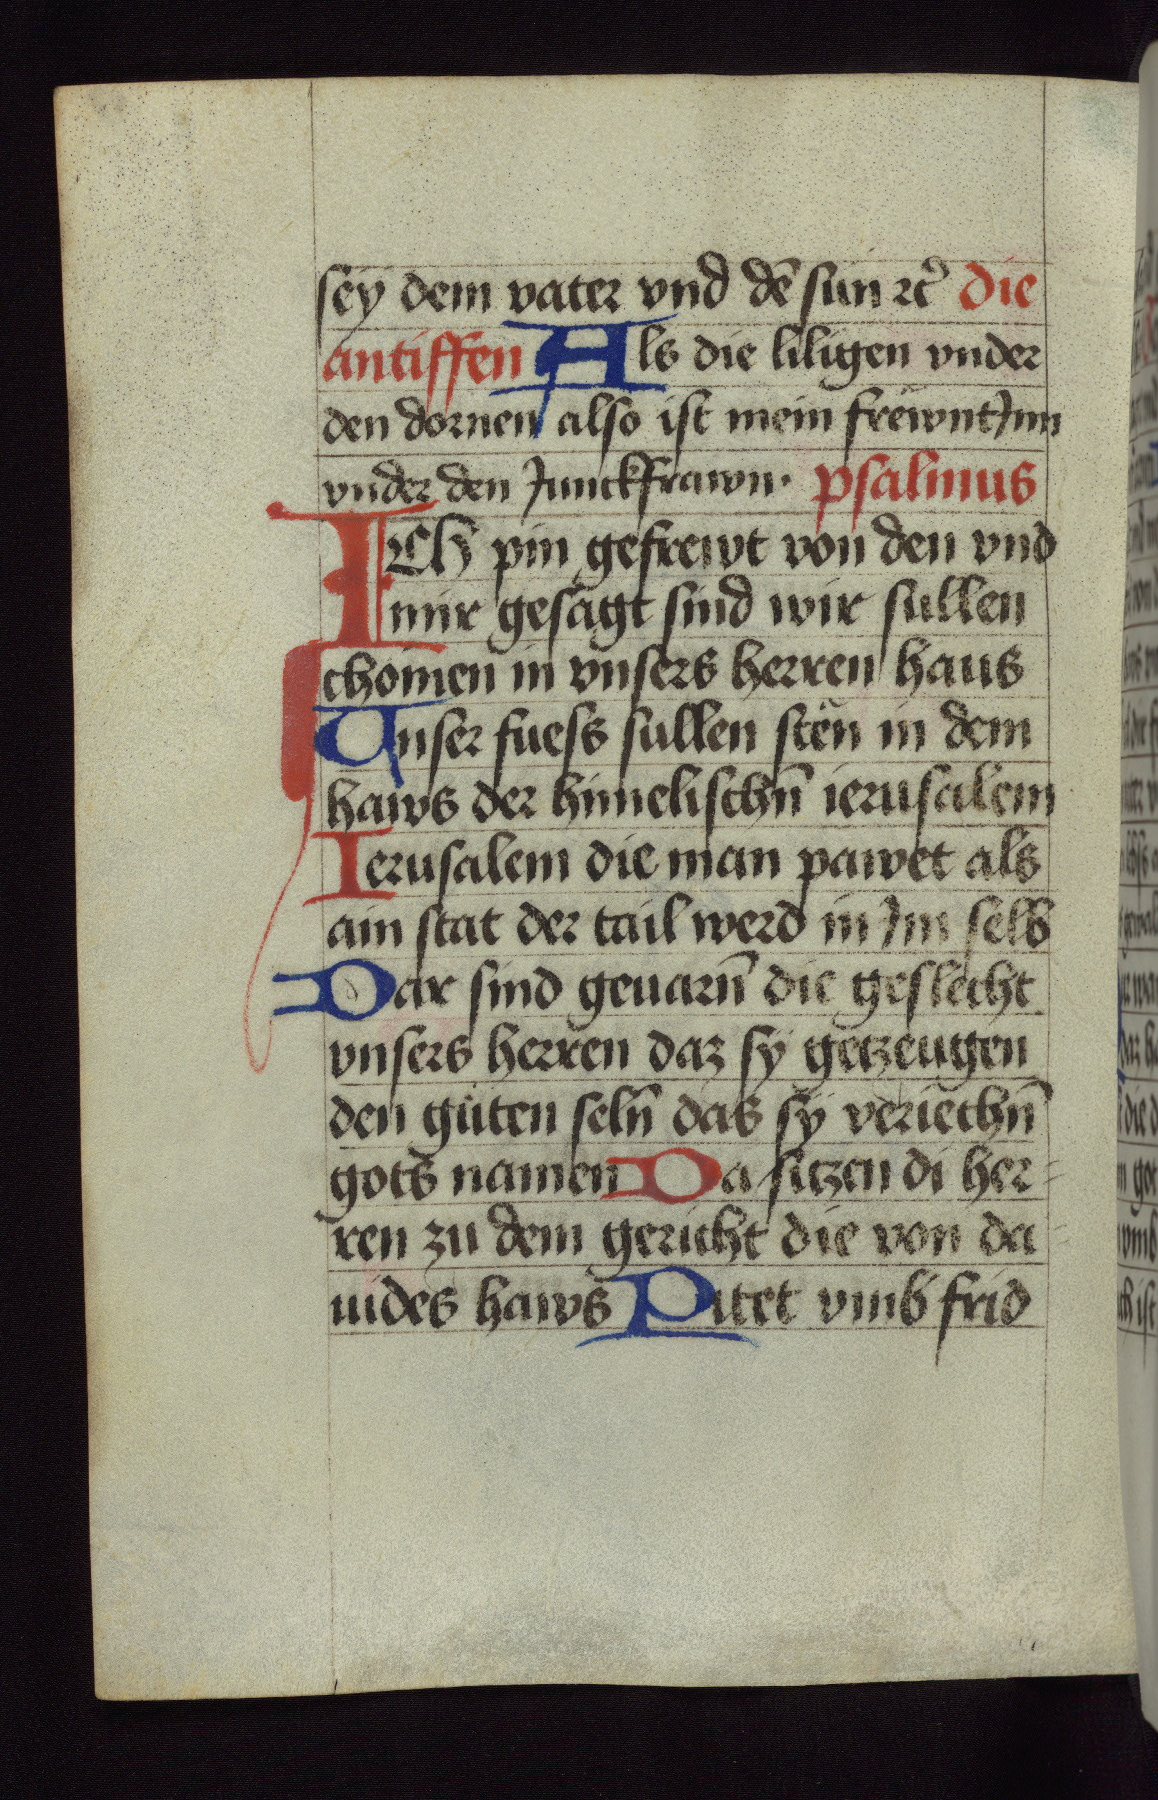 sey dem vater vnd dē sun ꝛc̄ die
antiffen Als die liligen vnder
den dornen also ist mein frëwntJnn
vnder den Junckfrawn· psalmus
ICh pin gefrewt von den vnd
mir gesagt sind wir sullen
chömen in vnsers herren haus
Vnser fuess sullen sten in dem
haws der himelischn̄ ierusalem
Ierusalem die man pawet als
ain stat der tail werd in Jm selb
Dar sind geuarn̄ die geslecht
vnsers herren daz sy getzeugen
den guten seln̄ das sy veriechn̄
gots namen Da sitzen di her=
ren zu dem gericht die von da
uides haws Pitet vmb frid